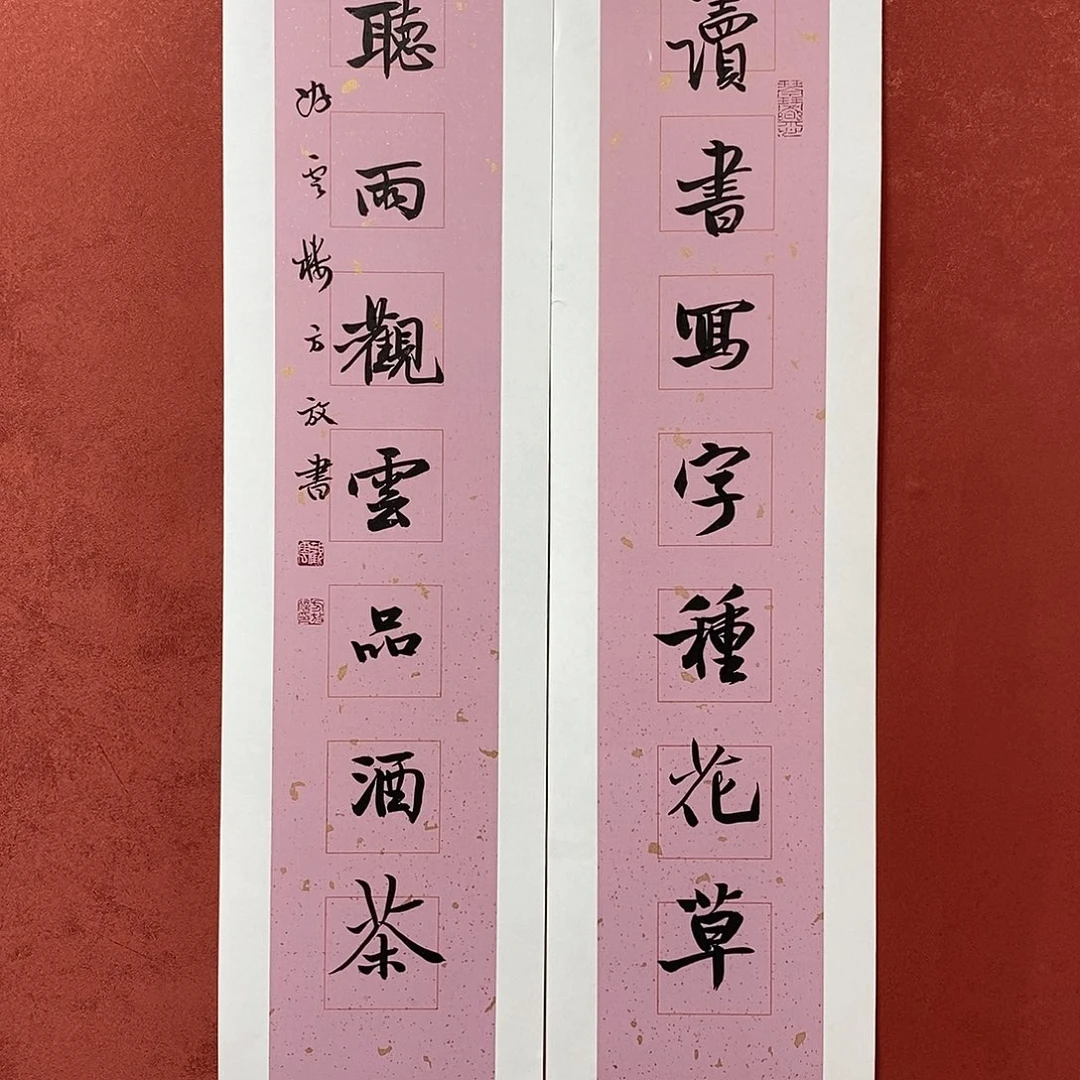 讀書寫字種花草
聽雨觀雲品酒茶
雲樓方放書